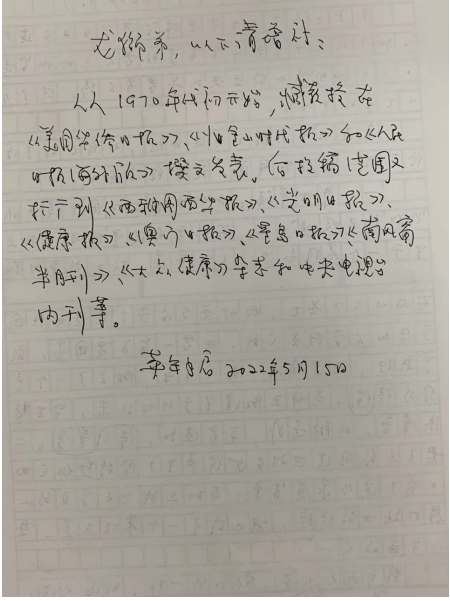 龙狮弟，以下请增补：
从1970年代初开始，臧教授在
《美国华侨日报》、《旧金山时代报》和《人民
日报海外版》撰文发表。后投稿范围又
扩广到《西雅图西华报》、《光明日报》、
《健康报》《澳门日报》、《星岛日报》《南风窗
半月刊》、《大众健康》杂志和中央电视台
内刊等。
2022年5月15日